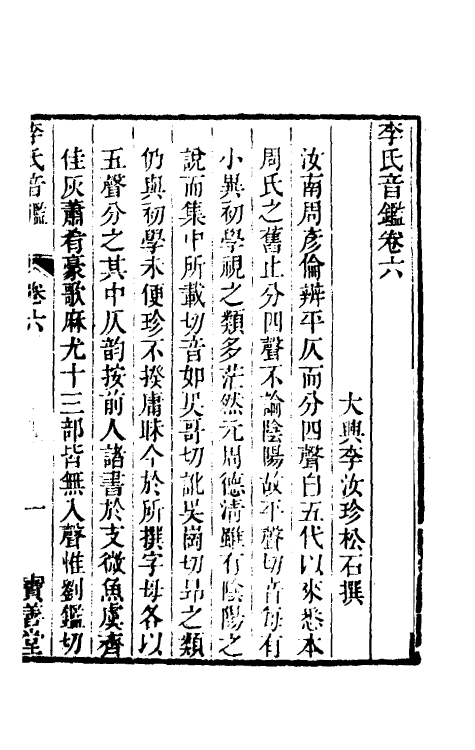 李氏音鑑卷六
大興李汝珍松石撰
汝南周彥倫辨平仄而分四聲自五代以來悉本
周氏之舊止分四聲不論陰陽故平聲切音每有
小異初學視之類多茫然元周德清雖有陰陽之
說而集中所載切音如吳哥切訛吴崗切昂之類
仍與初學未便珍不揆庸昧今於所撰字母各以
五聲分之其中仄韵按前人諸書於支微魚虞齊
佳灰蕭肴豪歌麻尤十三部皆無入聲惟劉鑑切
李氏音鑑
卷六
一
寶善堂